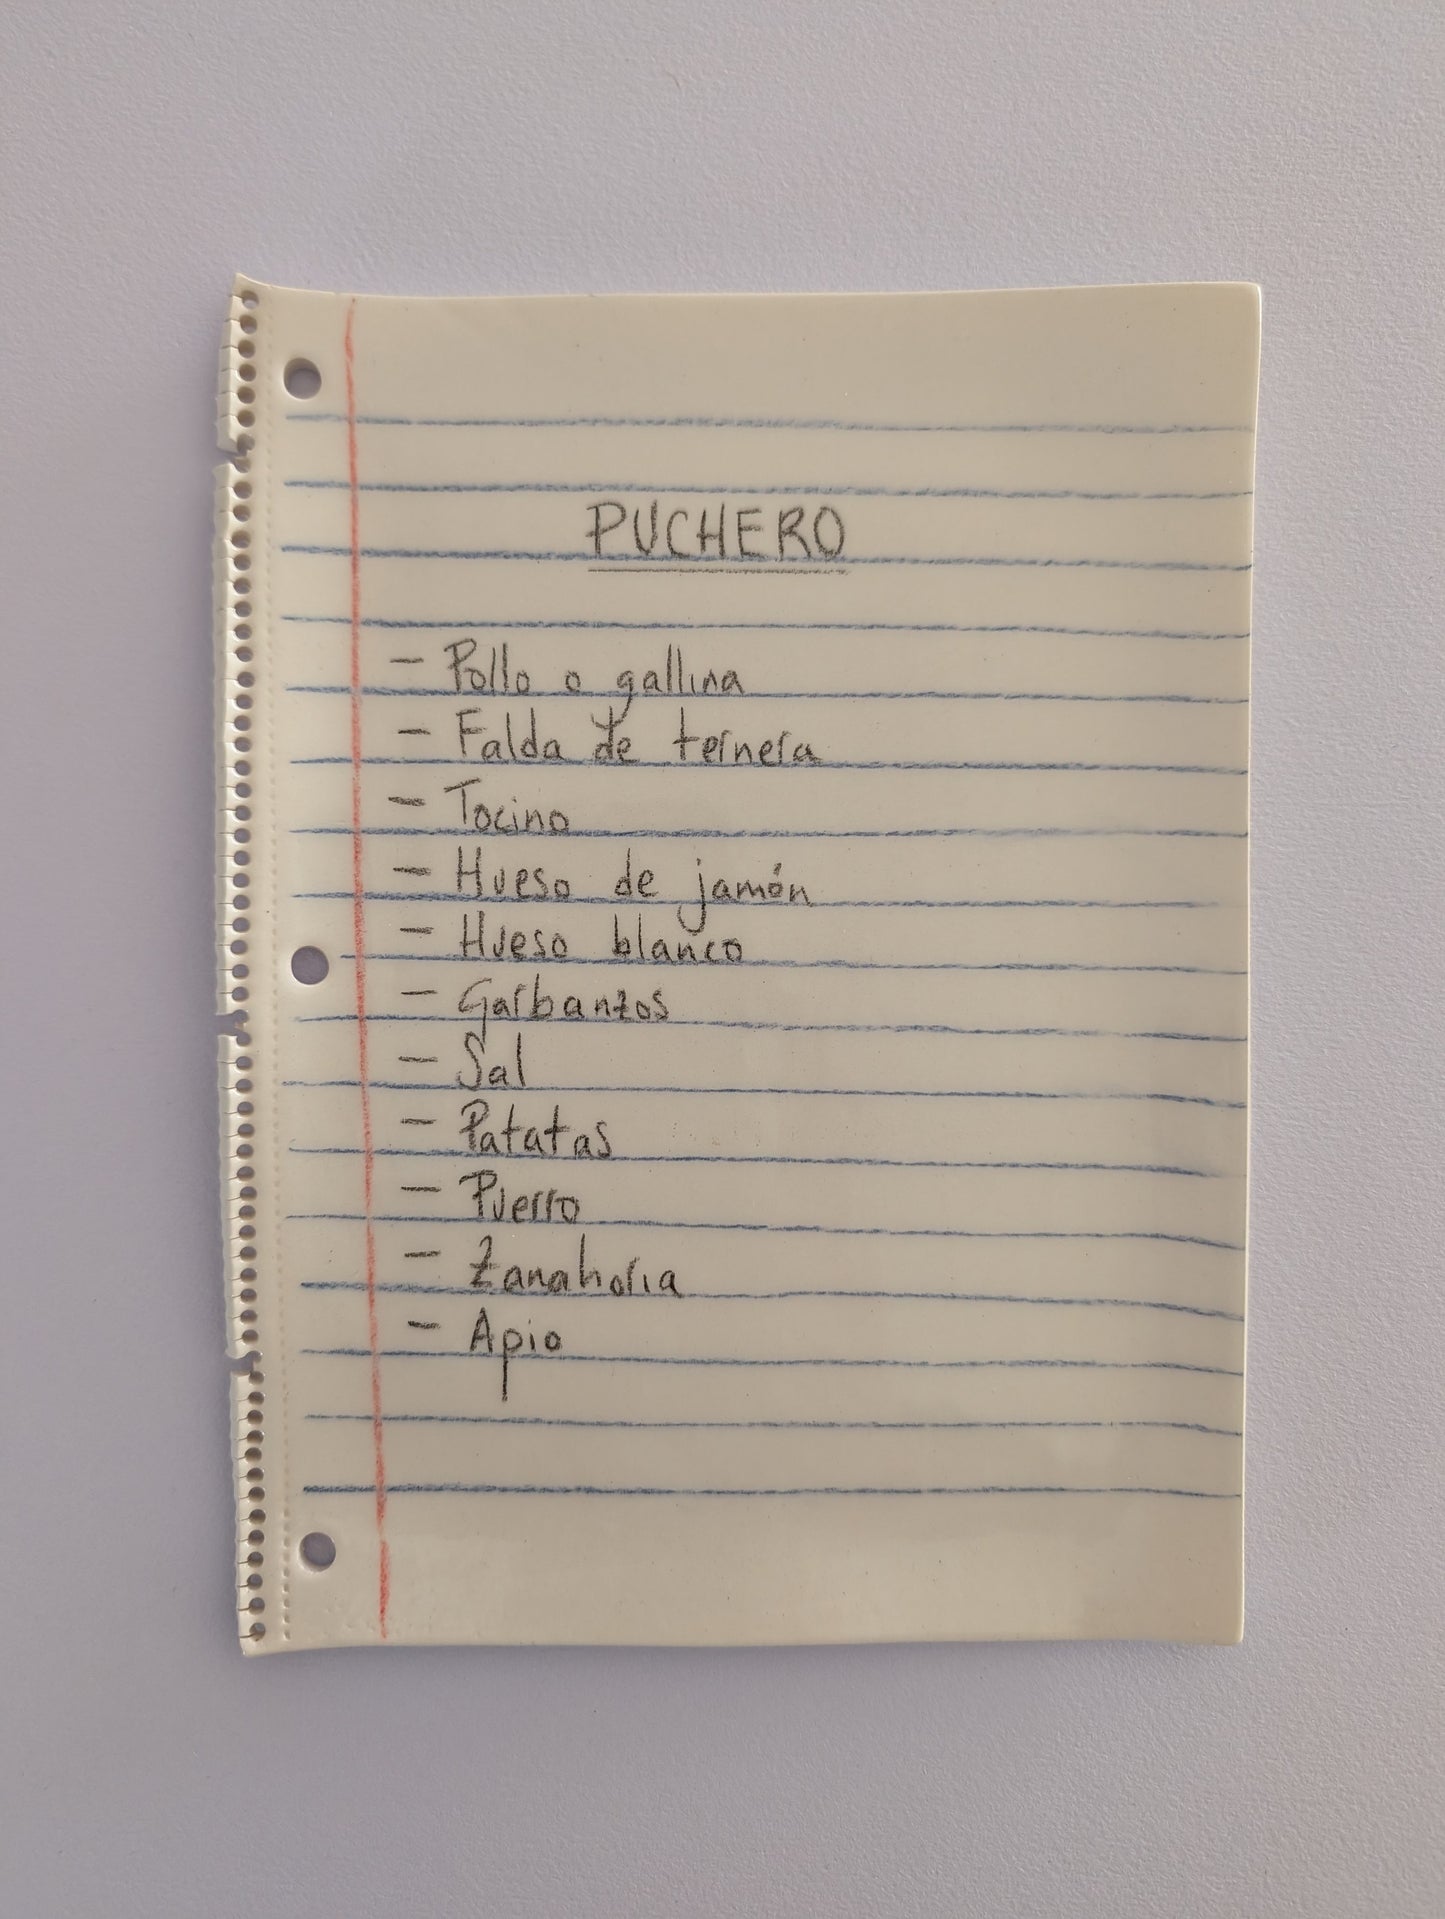 PUCHERO
- Pollo o gallina
- Falda de ternera
- Tocino
- Hueso de jamón
- Hueso blanco
- Garbanzos
- Sal
- Patatas
- Puerro
- Zanahoria
- Apio